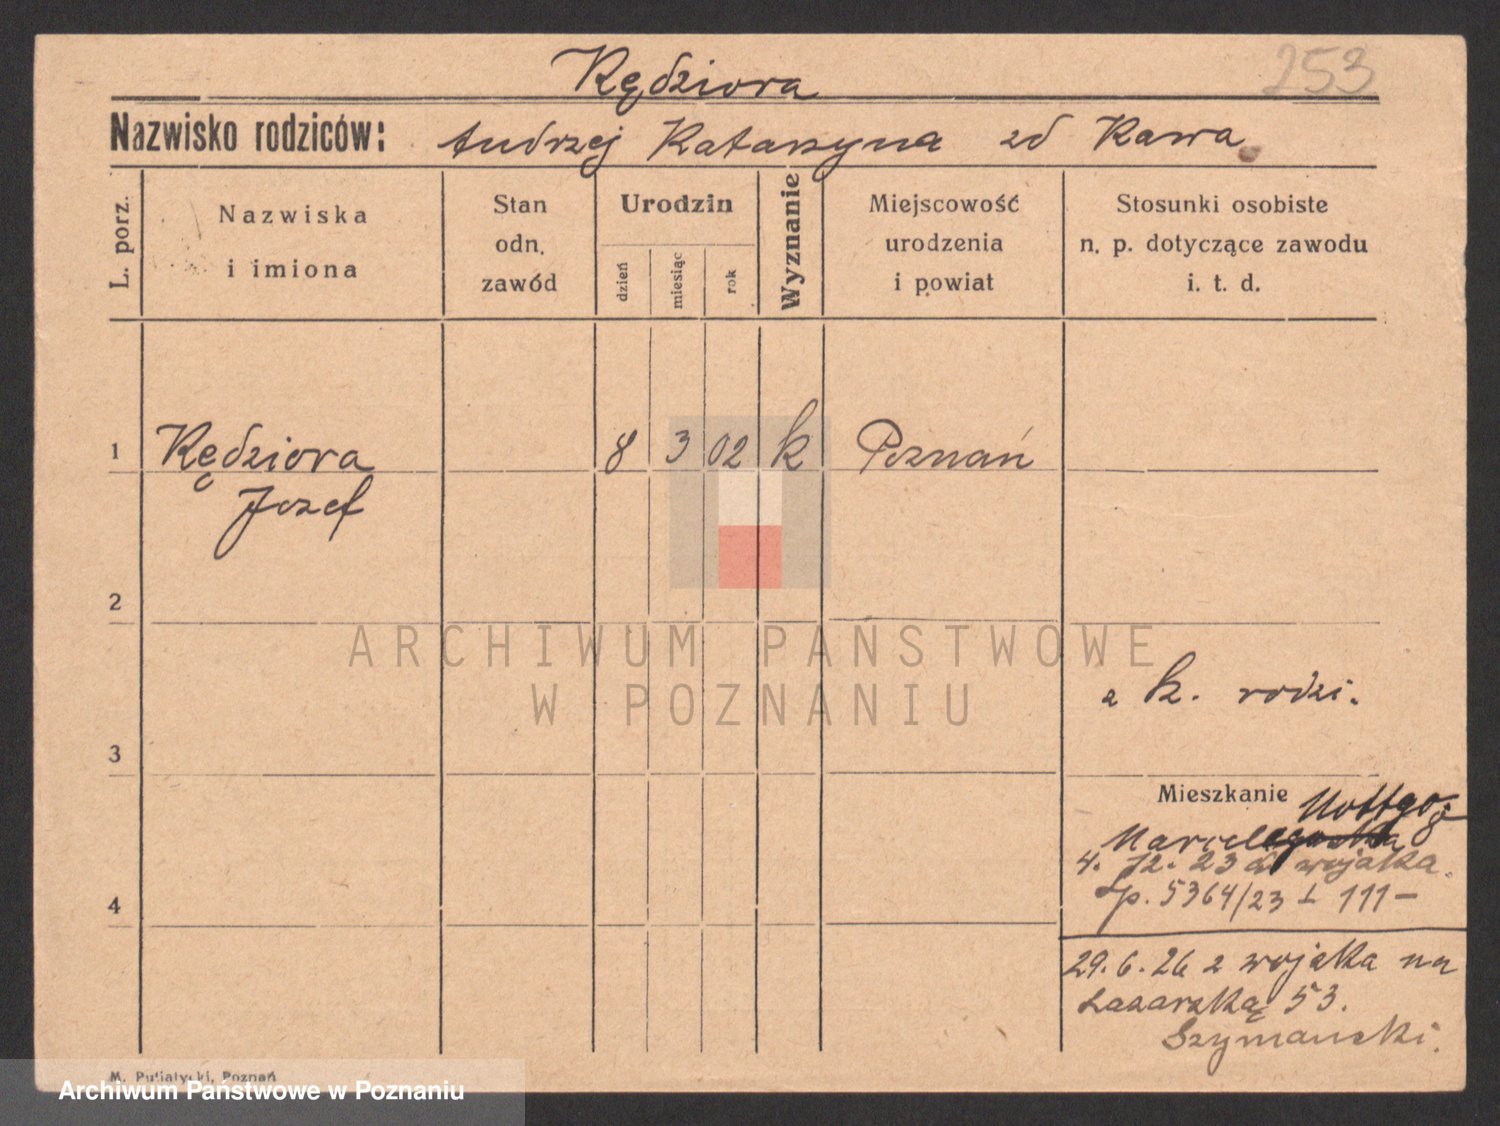 Kędziora
253
Nazwisko rodziców: Andrzej Katarzyna zd Kawa
L. porz.
Nazwiska
i imiona
Stan
odn.
zawód
Urodzin
dzień
miesiąc
rok
Wyznanie
Miejscowość
urodzenia
i powiat
Stosunki osobiste
n. p. dotyczące zawodu
i. t. d.
1 Kędziora 8 3 02 k Poznań
Jozef
2
ARCHIWUM PAŃSTWOWE
W POZNANIU
z k. rodzi.
3
Mieszkanie
4. 12. 23 do wojska.
p. 5364/23 L 111-
4
29.6.26 z wojska na
Łazarską 53.
Szymański.
M. Putiatycki, Poznań
Archiwum Państwowe w Poznaniu